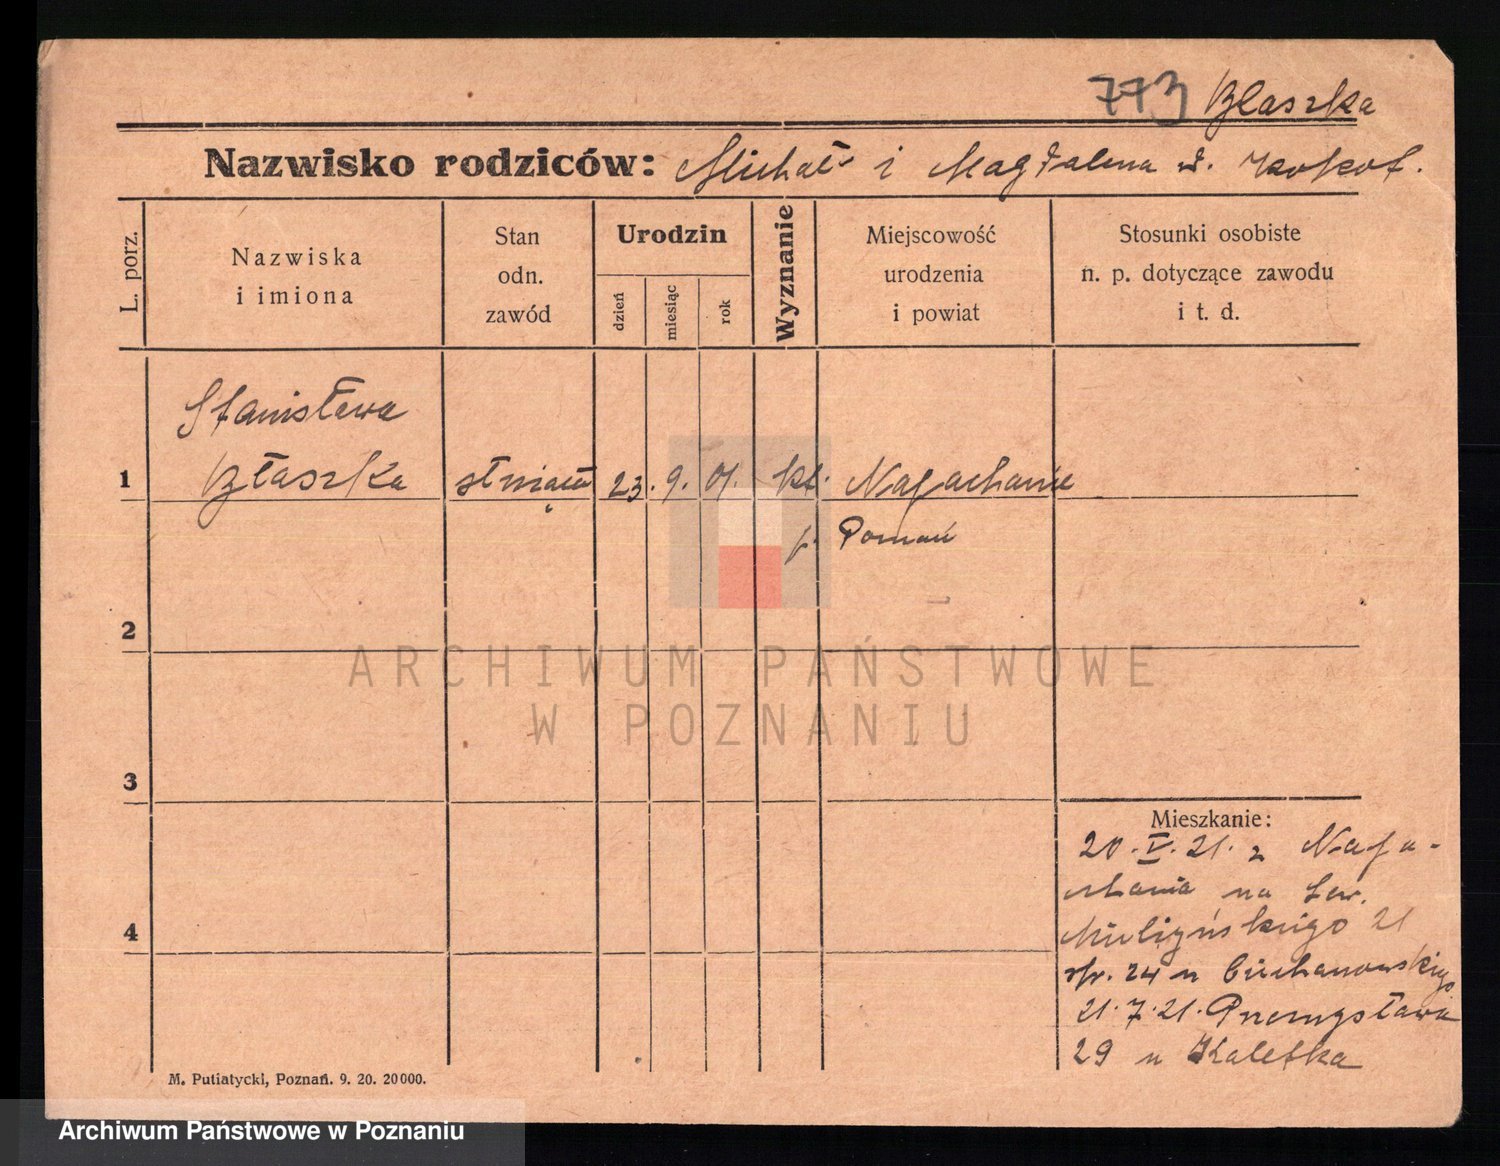 773 Błaszka
Nazwisko rodziców: Michał i Magdalena d. Kokot.
L. porz.
Nazwiska
i imiona
Stan
odn.
zawód
Urodzin
dzień
miesiąc
rok
Wyznanie
Miejscowość
urodzenia
i powiat
Stosunki osobiste
n. p. dotyczące zawodu
i t. d.
Stanisława
1 Błaszka służąca 23. 9. 01. kt.
p. Poznań
2
ARCHIWUM PAŃSTWOWE
W POZNANIU
3
Mieszkanie:
20. V. 21. z
na Sew.
4
Mielżyńskiego 21
24 u Ciechanowskiego
21. 7. 21. Przemysława
29 u Kaletka
M. Putiatycki, Poznań. 9. 20. 20000.
Archiwum Państwowe w Poznaniu